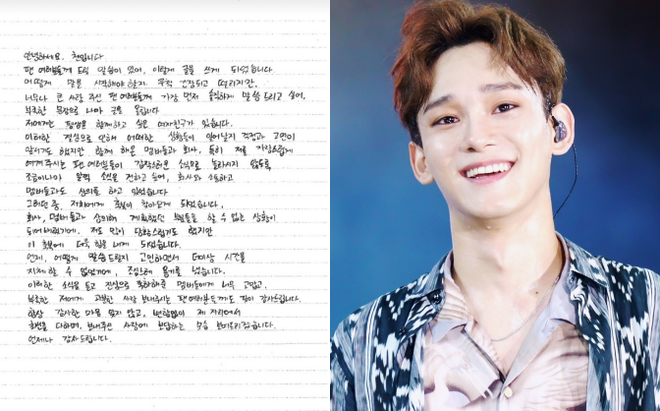 안녕하세요. 첸입니다
팬 여러분들께 드릴 말씀이 있어, 이렇게 글을 쓰게 되었습니다.
어떻게 말을 시작해야할지 무척 긴장되고 떨리지만,
너무나 큰 사랑 주신 팬 여러분들께 가장 먼저 솔직하게 말씀 드리고 싶어,
부족한 문장으로 나마 글을 올립니다
저에게는 평생을 함께하고 싶은 여자친구가 있습니다.
이러한 결심으로 인해 어떠한 상황들이 일어날지 걱정과 고민이
앞서기도 했지만 함께 해온 멤버들과 회사, 특히 저를 자랑스럽게
여겨주시는 팬 여러분들이 갑작스러운 소식으로 놀라시지 않도록
조금이나마 일찍 소식을 전하고 싶어, 회사와 소통하고
멤버들과도 상의를 하고 있었습니다
그러던 중, 저희에게 축복이 찾아오게 되었습니다.
회사, 멤버들과 상의해 계획했던 부분들을 할 수 없는 상황이
되어버렸기에, 저도 많이 당황스럽기도 했지만
이 축복에 더욱 힘을 내게 되었습니다
언제, 어떻게 말씀드릴지 고민하면서 더이상 시간을
지체 할 수 없었기에, 조심스레 용기를 냈습니다.
이러한 소식을 듣고 진심으로 축하해준 멤버들에게 너무 고맙고,
부족한 저에게 과분한 사랑 보내주시는 팬 여러분들께도 깊이 감사드립니다.
항상 감사한 마음 잊지 않고, 변함없이 제 자리에서
최선을 다하며, 보내주신 사랑에 보답하는 모습 보여드리겠습니다.
언제나 감사드립니다.